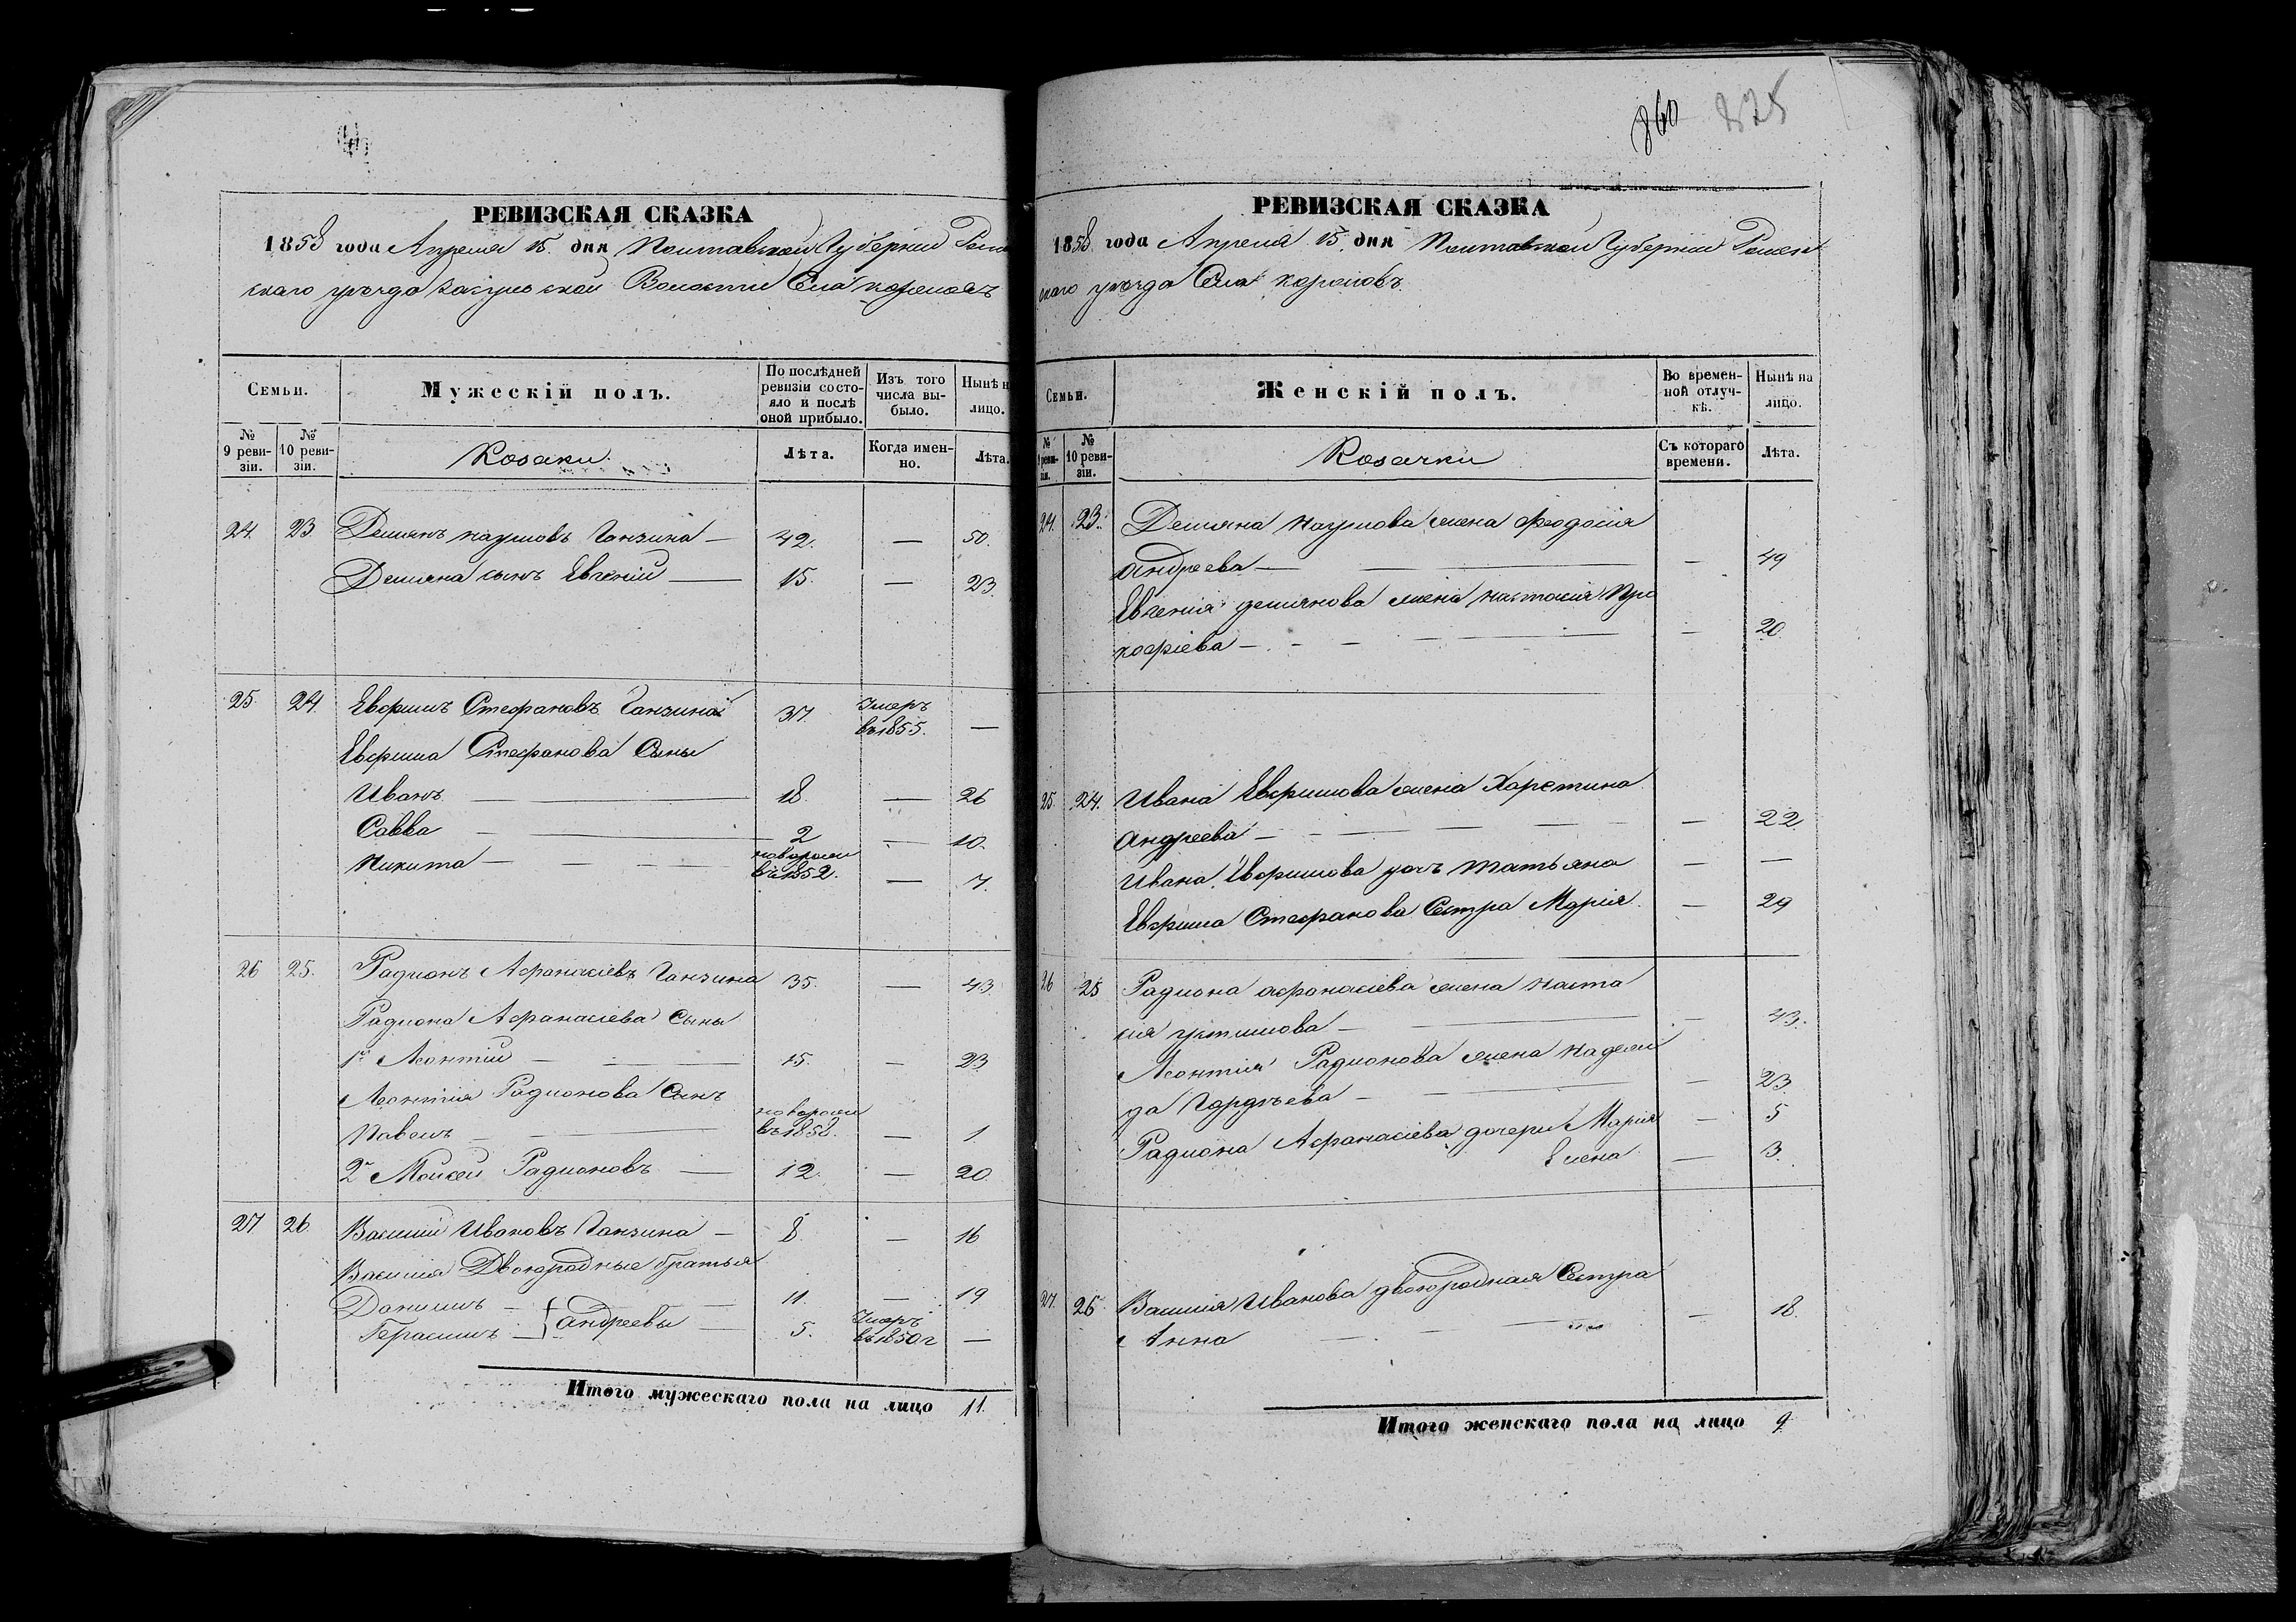 860 825
РЕВИЗСКАЯ СКАЗКА
1858 года Апреля 15. дня Полтавской Губерніи Ромен
скаго уѣзда Волости Села
Семьи.
Мужескій полъ.
По послѣдней ревизіи состо-
яло и послѣ оной прибыло.
Изъ того числа вы-
было.
Нынѣ н
лицо.
№ 9 реви-
зіи.
№ 10 реви-
зіи.
Козаки.
Лѣта.
Когда имен-
но.
Лѣта.
24. 23. Демянъ Наумовъ Ганзина — 42. — 50.
Демяна сынъ Евгеній — 15. — 23.
25. 24. Евфимъ Стефановъ Ганзина 37. Умеръ въ 1855. —
Евфима Стефанова Сыны
Иванъ — 18. — 26
Савва — 2 — 10.
Никита — новорожд въ 1852. — 7.
26 25. Радионъ Афанасіевъ Ганзина 35. — 43.
Радиона Афанасіева Сыны
1й Леонтій — 15. — 23
Леонтія Радионова Сынъ
Павелъ — новорожд въ 1858. — 1.
2й Мойсей Радионовъ — 12. — 20.
27 26. Василій Ивановъ Ганзина — 8. — 16
Василія Двоюродные братья
Данилъ — { Андреевы — 11. — 19
Герасимъ — 5. Умеръ въ 1850 г —
Итого мужескаго пола на лицо 11.
РЕВИЗСКАЯ СКАЗКА
1858 года Апреля 15. дня Полтавской Губерніи Ромен
скаго уѣзда Села
Семьи.
Женскій полъ.
Во времен-
ной отлуч-
кѣ.
Нынѣ на
лицо.
№ 9 реви-
зіи.
№ 10 реви-
зіи.
Козачки
Съ котораго
времени.
Лѣта.
24. 23. Демяна Наумова жена Феодосія
Андреева — — 49
Евгенія Демянова жена Настасія Про
кофіева — — 20.
25. 24. Ивана Евфимова жена Харетина
Андреева — — 22
Ивана Евфимова дочь Татьяна — —
Евфима Стефанова Сестра Марія. — 29
26 25 Радиона Афанасіева жена Наста
сія Устимова — — 43.
Леонтія Радионова жена Надеж
да Гордѣева — — 23.
Радиона Афанасіева дочери Марія — 5
Елена — 3.
27. 26. Василія Иванова двоюродная Сестра
Анна — — 18.
Итого женскаго пола на лицо 9